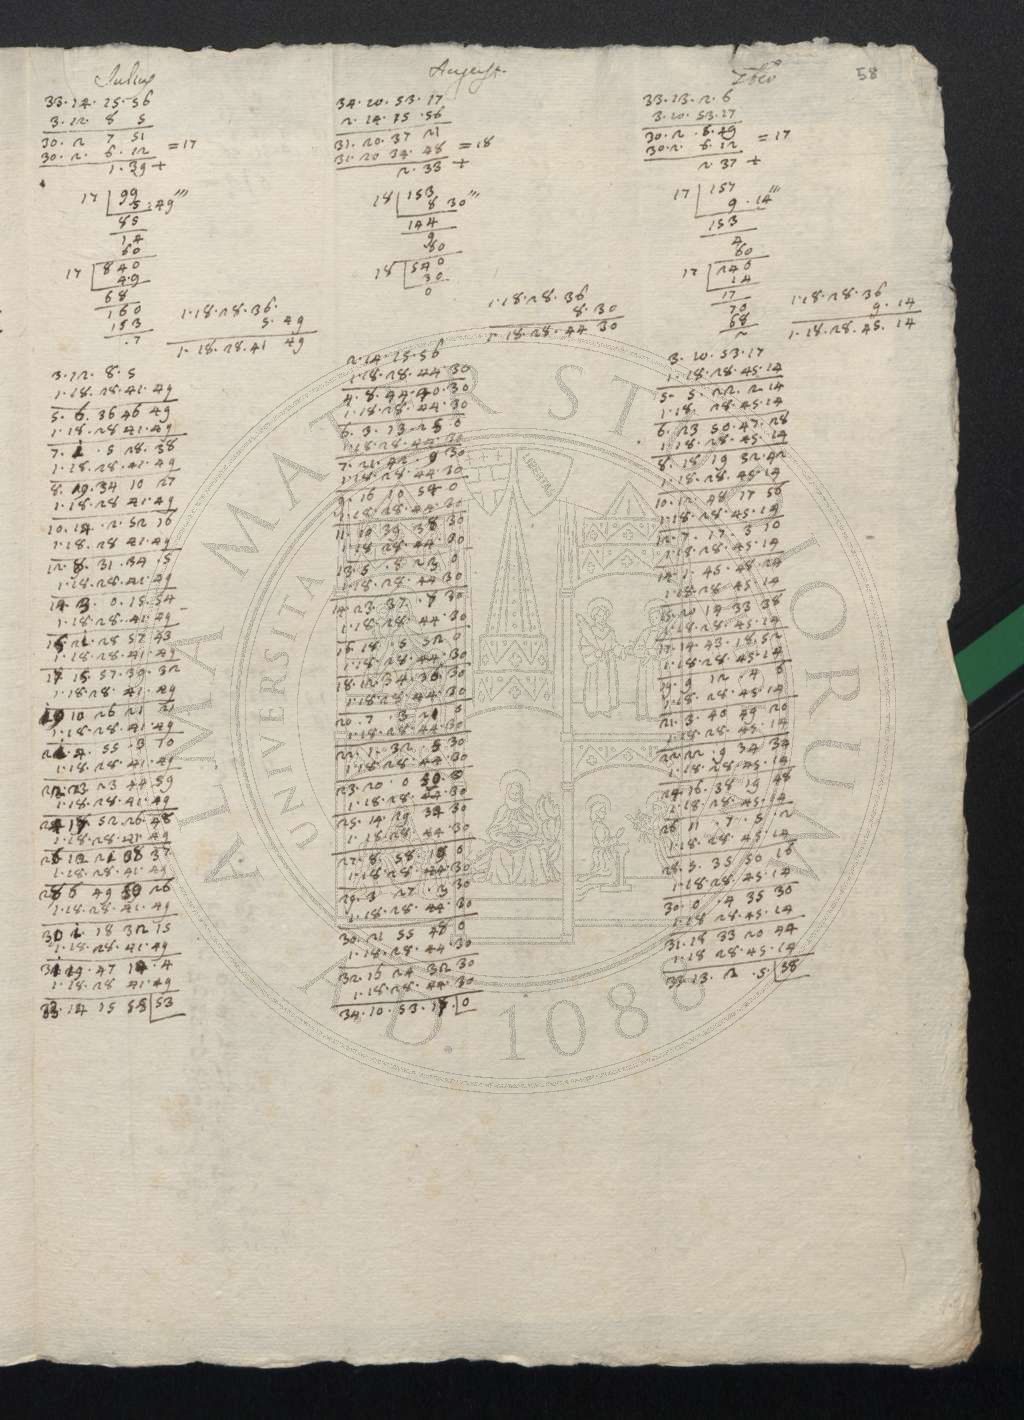 58
Julius
33.14.15.56
3.12.8.5
30.2.7.51
30.2.6.12 =17
1.39+
17 99
5.49'''
85
14
60
17 840
49
68
160
153
.7
1.18.28.36.
5.49
1.18.28.41 49
3.12.8.5
1.18.28.41.49
5.6.36 46 49
1.18.28 41.49
7.1.5 28.38
1.18.28.41.49
8.19.34 10 27
1.18.28 41.49
10.14.2.52 16
1.18.28 41.49
12.8.31.34.5
1.18.28.41.49
14 3.0.15.54
1.18.28.41.49
15 21.28 57 43
1.18.28.41.49
17 15 57.39.32
1.18.28.41.49
19 10 26 21 21
1.18.28.41.49
21 4.55.3 10
1.18.28.41.49
22 23 23 44 59
1.18.28.41.49
24 17 52 26 48
1.18.28.41 49
26 12 21 08 37
1.18.28.41.49
28 6 49 50 26
1.18.28.41.49
30 1 18 32 15
1.18.28.41.49
31 19.47 14.4
1.18.28 41.49
33.14 15 55 53
August.
34.10.53.17
2.14.15.56
31.20.37 21
31.20 34.48 =18
2.33 +
18 153
8 30'''
144
9
60
18 540
30
0
1.18.28.36
8.30
1.18.28.44 30
2.14.15.56
1.18.28.44.30
4.8.44.40.30
1.18.28.44.30
6.3.13.25 0
1.18.28.44.30
7.21.42.9 30
1.18.28.44 30
9.16 10 54 0
1.18.28.44.30
11.10 39 38 30
1.18 28 44.30
13.5.8 23 0
1.18.28.44 30
14 23 37.7 30
1.18.28 44.30
16 18.5 52 0
1.18.28.44.30
18.12 34.36.30
1.18.28.44.30
20.7.3 21 0
1.18.28.44.30
22.1.32.5 30
1.18.28.44 30
23.20 0 50.0
1.18.28.44.30
25.14 29 34 30
1.18.28 44.30
27.8.58.19 0
1.18.28.44.30
29.3 27.3 30
1.18.28.44.30
30.21 55 48 0
1.18.28.44.30
32.16 24 32 30
1.18.28.44.30
34.10.53.17. 0
7bro
33.13.2.6
3.10.53.17
30.2.8.49
30.2.6.12 =17
2 37 +
17 157
9.14'''
153
4
60
17 240
14
17
70
68
2
1.18.28.36
9.14
1.18.28.45.14
3.10.53.17
1.18.28.45.14
5.5.22.2.14
1.18.28.45.14
6.23 50.47.28
1.18.28.45.14
8.18 19 32 42
1.18.28.45.14
10.12.48 17 56
1.18.28.45.14
12.7.17.3 10
1.18.28.45.14
14 1.45.48 24
1.18.28.45.14
15.20 14 33 38
1.18.28.45.14
17.14 43.18.52
1.18.28.45.14
19.9 12.4 6
1.18.28.45.14
21.3.40 49 20
1.18.28.45.14
22 22.9 34 34
1.18.28.45.14
24.16.38 19 48
1.18.28.45.14
26 11.7.5.2
1.18.28.45.14
28.5.35 50 16
1.18.28.45.14
30.0.4 35 30
1.18 28.45.14
31.18 33 20 44
1.18 28.45.14
33.13.2.5 58
ALMA MATER STUDIORUM
A.D. 1088